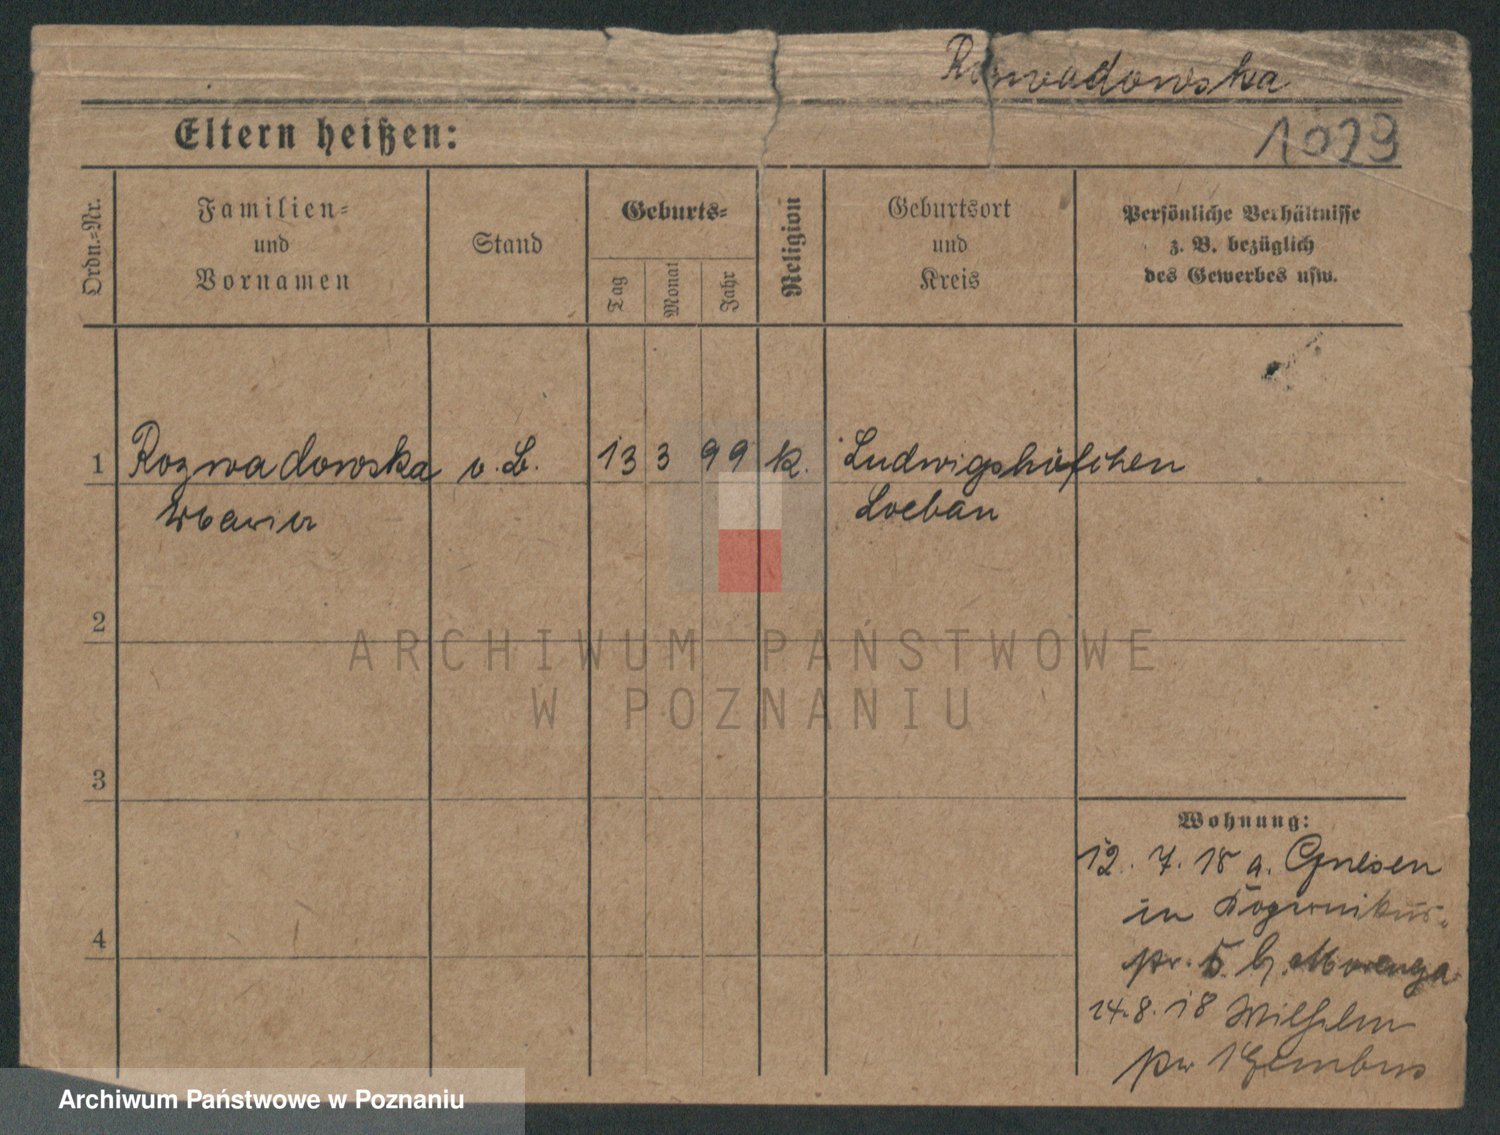 Rozwadowska
Eltern heißen:
1023
Ordn.=Nr.
Familien=
und
Vornamen
Stand
Geburts=
Tag
Monat
Jahr
Religion
Geburtsort
und
Kreis
Persönliche Verhältnisse
z. B. bezüglich
des Gewerbes usw.
1 Rozwadowska o. B. 13 3 99 k. Ludwigshöfchen
Loebau
2
3
4
Wohnung:
12. 7. 18 a. Gnesen
in
str. 5 b.
14.8.18 Wilhelm
ARCHIWUM PAŃSTWOWE
W POZNANIU
Archiwum Państwowe w Poznaniu